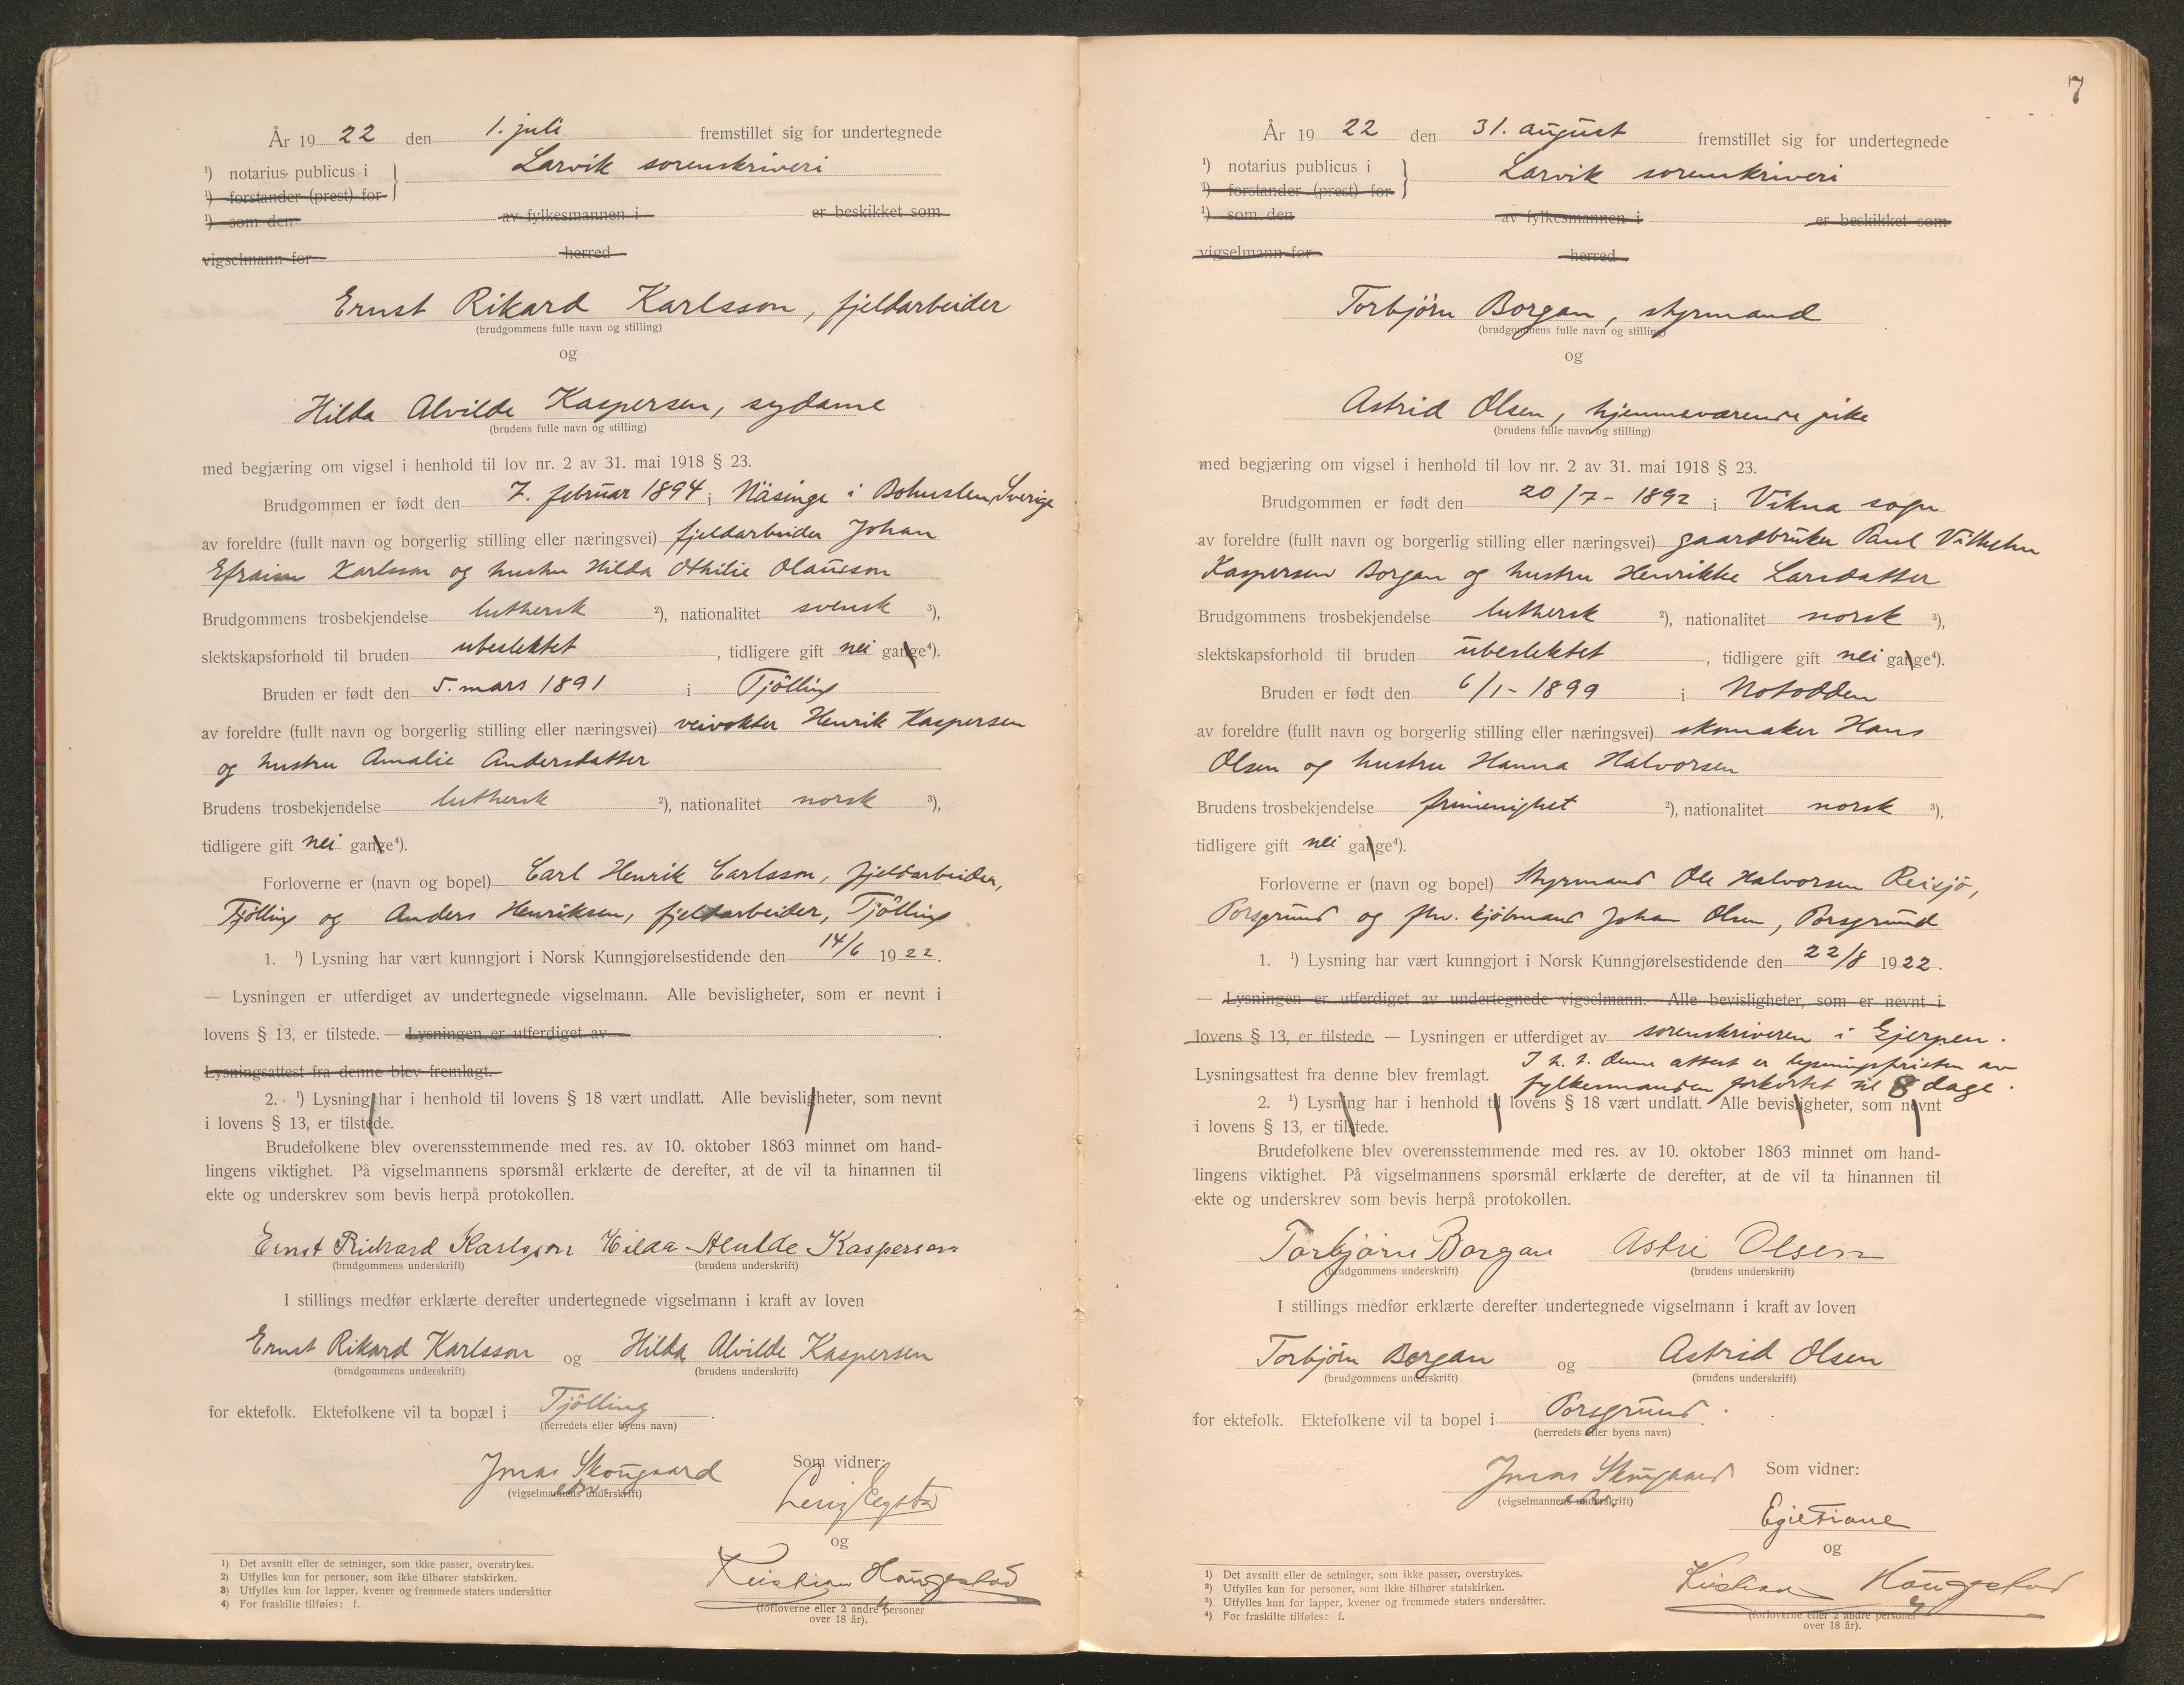 År 19 22 den 1. juli fremstillet sig for undertegnede
¹) notarius publicus i } Larvik sorenskriveri
¹) forstander (prest) for
¹) som den av fylkesmannen i er beskikket som
vigselmann for herred
Ernst Rikard Karlsson, fjeldarbeider
(brudgommens fulle navn og stilling)
og
Hilda Alvilde Kaspersen, sydame
(brudens fulle navn og stilling)
med begjæring om vigsel i henhold til lov nr. 2 av 31. mai 1918 § 23.
Brudgommen er født den 7. februar 1894 i Näsinge i Bohuslen, Sverige
av foreldre (fullt navn og borgerlig stilling eller næringsvei) fjeldarbeider Johan
Efraim Karlsson og hustru Hilda Othilie Olausson
Brudgommens trosbekjendelse luthersk ²), nationalitet svensk ³),
slektskapsforhold til bruden ubeslektet, tidligere gift nei gange⁴).
Bruden er født den 5. mars 1891 i Tjölling
av foreldre (fullt navn og borgerlig stilling eller næringsvei) veivokter Henrik Kaspersen
og hustru Amalie Andersdatter
Brudens trosbekjendelse luthersk ²), nationalitet norsk ³),
tidligere gift nei gange⁴).
Forloverne er (navn og bopel) Carl Henrik Carlsson, fjeldarbeider,
Tjølling og Anders Henriksen, fjeldarbeider, Tjölling
1. ¹) Lysning har vært kunngjort i Norsk Kunngjørelsestidende den 14/6 1922.
— Lysningen er utferdiget av undertegnede vigselmann. Alle bevisligheter, som er nevnt i
lovens § 13, er tilstede. — Lysningen er utferdiget av .
Lysningsattest fra denne blev fremlagt.
2. ¹) Lysning har i henhold til lovens § 18 vært undlatt. Alle bevisligheter, som nevnt
i lovens § 13, er tilstede.
Brudefolkene blev overensstemmende med res. av 10. oktober 1863 minnet om hand-
lingens viktighet. På vigselmannens spørsmål erklærte de derefter, at de vil ta hinannen til
ekte og underskrev som bevis herpå protokollen.
Ernst Richard Karlsson Hilda Alvilde Kaspersen
(brudgommens underskrift) (brudens underskrift)
I stillings medfør erklærte derefter undertegnede vigselmann i kraft av loven
Ernst Rikard Karlsson og Hilda Alvilde Kaspersen
(brudgommens underskrift) (brudens underskrift)
for ektefolk. Ektefolkene vil ta bopæl i Tjölling.
(herredets eller byens navn)
Jonas Skougaard Som vidner:
(vigselmannens underskrift)
og
Kristian Haugestad
(forloverne eller 2 andre personer
over 18 år).
1) Det avsnitt eller de setninger, som ikke passer, overstrykes.
2) Utfylles kun for personer, som ikke tilhører statskirken.
3) Utfylles kun for lapper, kvener og fremmede staters undersåtter
4) For fraskilte tilføies: f.
7
År 19 22 den 31. august fremstillet sig for undertegnede
¹) notarius publicus i } Larvik sorenskriveri
¹) forstander (prest) for
¹) som den av fylkesmannen i er beskikket som
vigselmann for herred
Torbjörn Borgan, styrmand
(brudgommens fulle navn og stilling)
og
Astrid Olsen, hjemmeværende pike
(brudens fulle navn og stilling)
med begjæring om vigsel i henhold til lov nr. 2 av 31. mai 1918 § 23.
Brudgommen er født den 20/7 - 1892 i Vikna sogn
av foreldre (fullt navn og borgerlig stilling eller næringsvei) gaardbruker Paul Vilhelm
Kaspersen Borgan og hustru Henrikke Larsdatter
Brudgommens trosbekjendelse luthersk ²), nationalitet norsk ³),
slektskapsforhold til bruden ubeslektet, tidligere gift nei gange⁴).
Bruden er født den 6/1 - 1899 i Notodden
av foreldre (fullt navn og borgerlig stilling eller næringsvei) skomaker Hans
Olsen og hustru Hanna Halvorsen
Brudens trosbekjendelse frimenighet ²), nationalitet norsk ³),
tidligere gift nei gange⁴).
Forloverne er (navn og bopel) Styrmand Ole Halvorsen Reisjö,
Porsgrund og fhv. kjöbmand Johan Olsen, Porsgrund
1. ¹) Lysning har vært kunngjort i Norsk Kunngjørelsestidende den 22/8 1922.
— Lysningen er utferdiget av undertegnede vigselmann. Alle bevisligheter, som er nevnt i
lovens § 13, er tilstede. — Lysningen er utferdiget av sorenskriveren i Gjerpen.
I h. t. denne attest er lysningsfristen av
Lysningsattest fra denne blev fremlagt. fylkesmanden forkortet til 8 dage.
2. ¹) Lysning har i henhold til lovens § 18 vært undlatt. Alle bevisligheter, som nevnt
i lovens § 13, er tilstede.
Brudefolkene blev overensstemmende med res. av 10. oktober 1863 minnet om hand-
lingens viktighet. På vigselmannens spørsmål erklærte de derefter, at de vil ta hinannen til
ekte og underskrev som bevis herpå protokollen.
Torbjørn Borgan Astri Olsen
(brudgommens underskrift) (brudens underskrift)
I stillings medfør erklærte derefter undertegnede vigselmann i kraft av loven
Torbjörn Borgan og Astrid Olsen
(brudgommens underskrift) (brudens underskrift)
for ektefolk. Ektefolkene vil ta bopel i Porsgrund.
(herredets eller byens navn)
Jonas Skougaard Som vidner:
(vigselmannens underskrift)
og
Kristian Haugestad
(forloverne eller 2 andre personer
over 18 år).
1) Det avsnitt eller de setninger, som ikke passer, overstrykes.
2) Utfylles kun for personer, som ikke tilhører statskirken.
3) Utfylles kun for lapper, kvener og fremmede staters undersåtter.
4) For fraskilte tilføies: f.